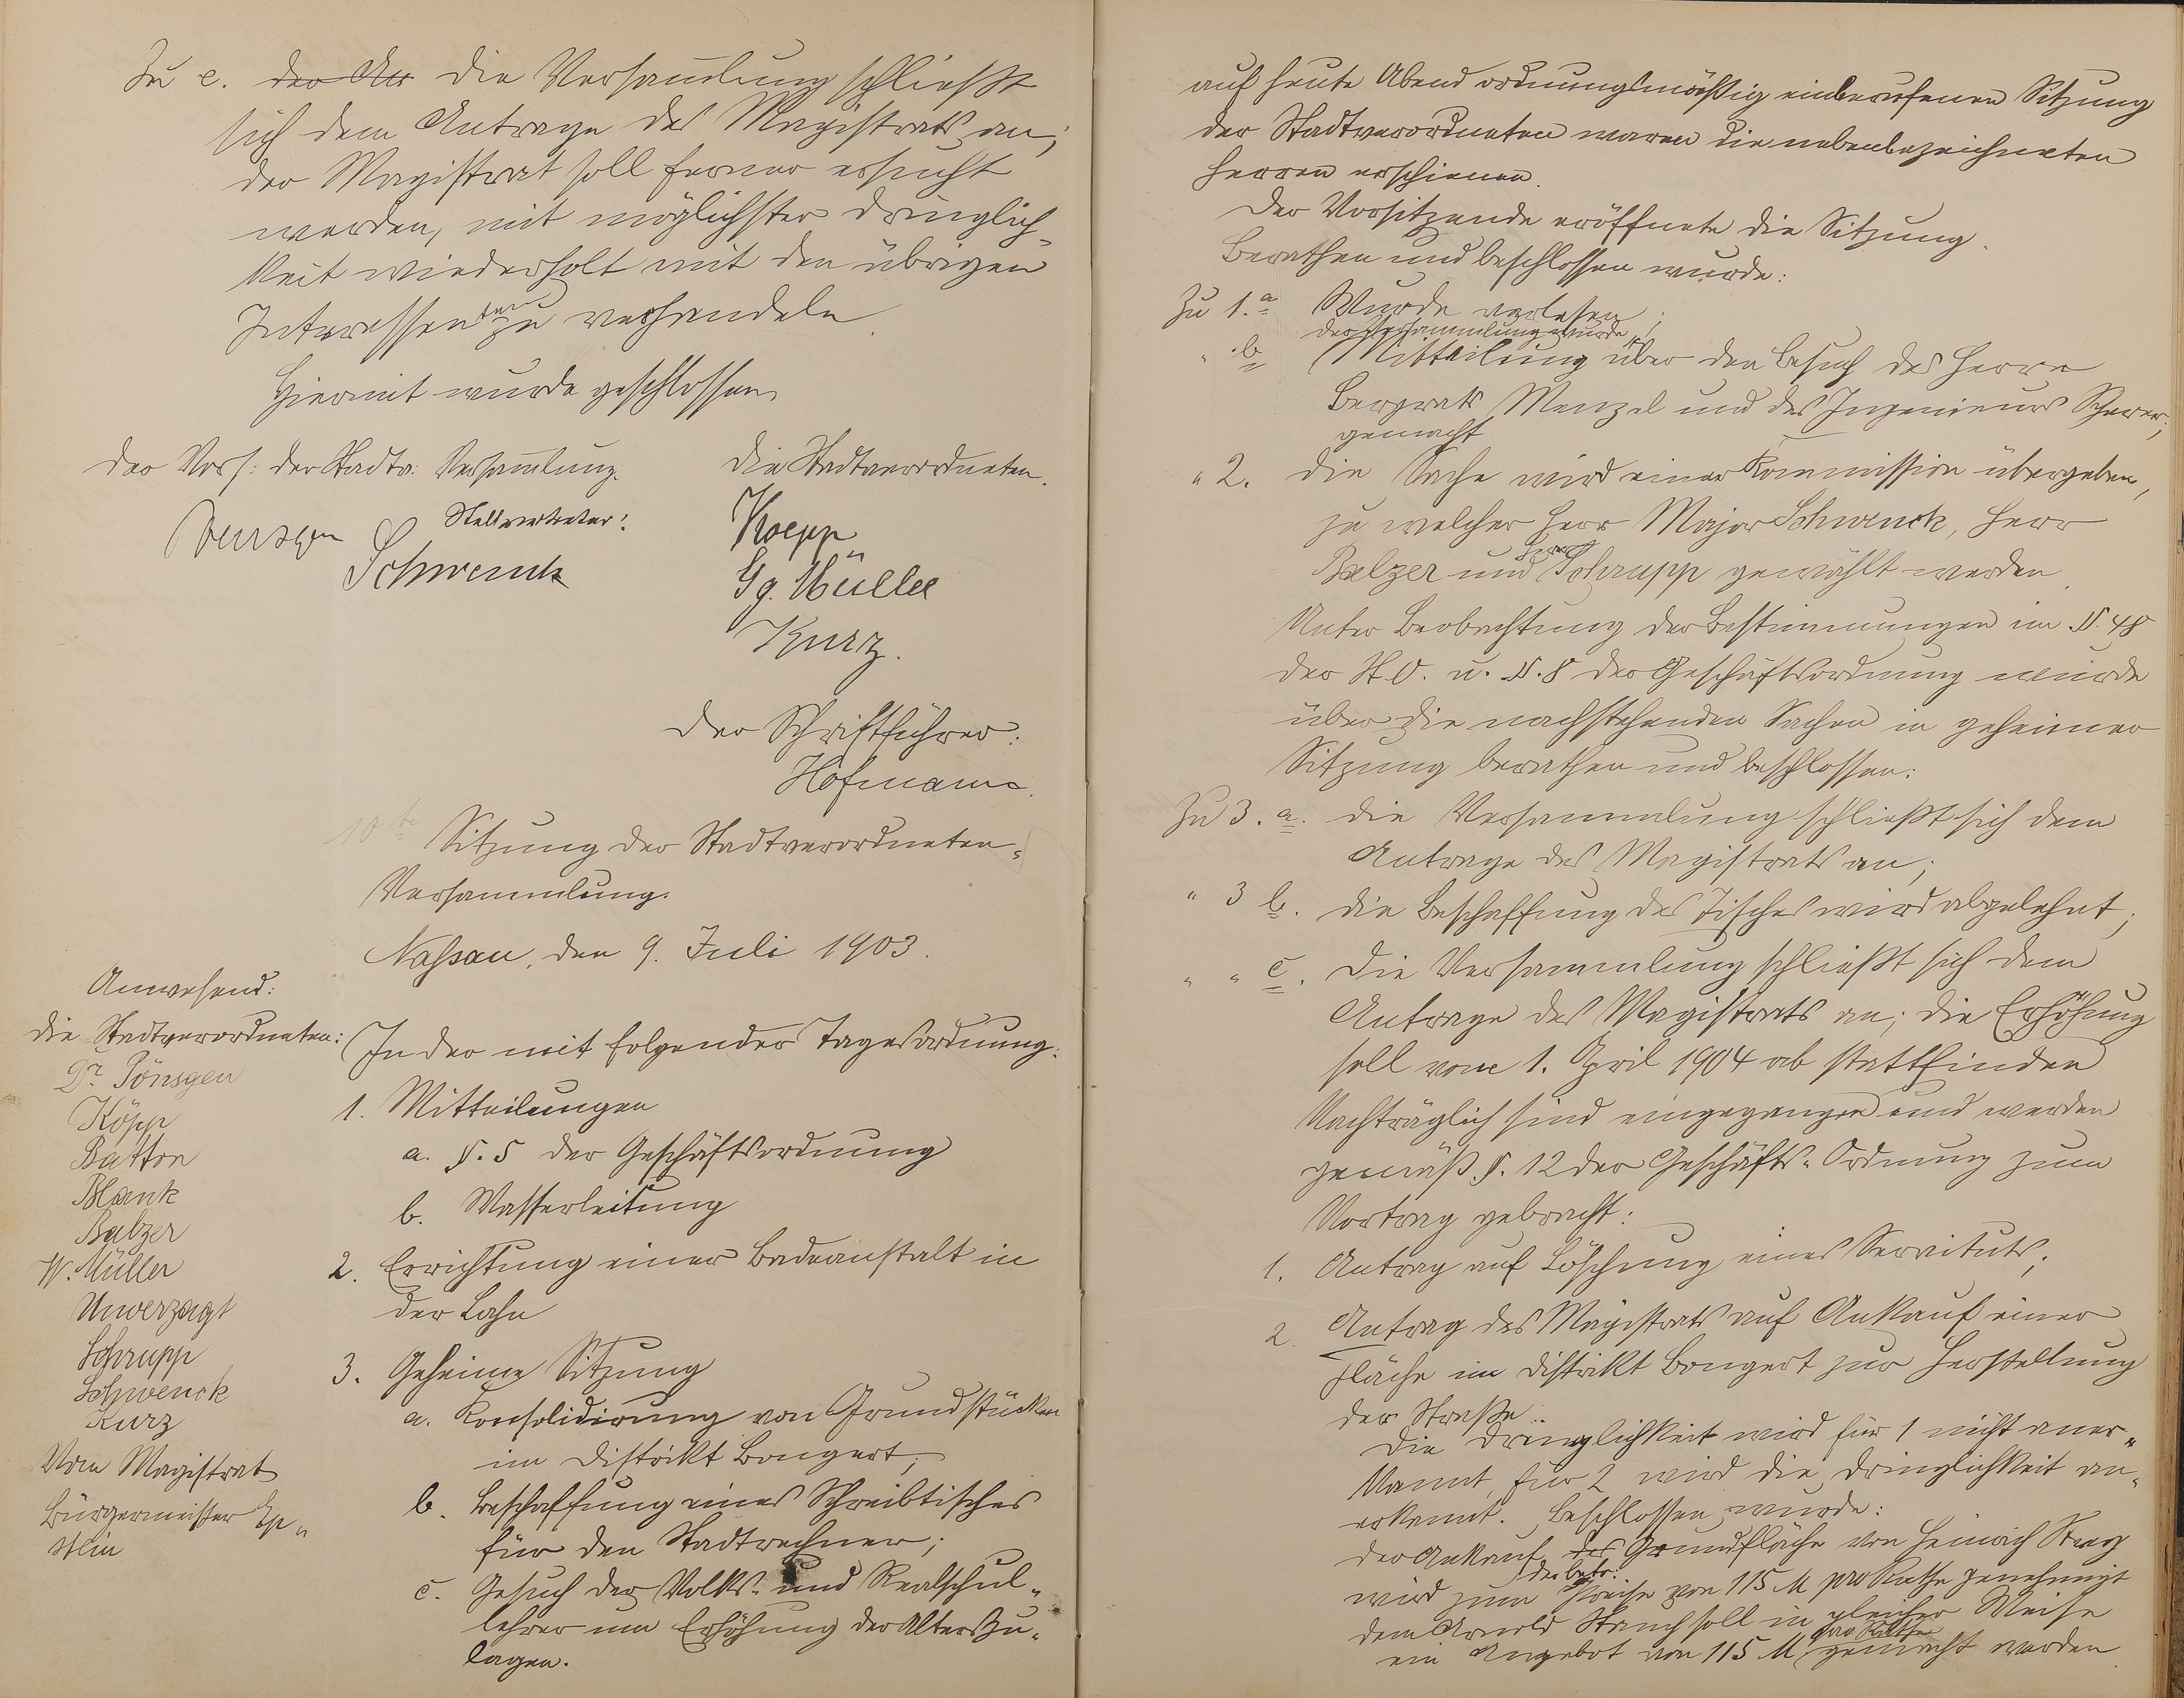 Zu c. der An die Versammlung schließt
sich dem Antrage des Magistrats an;
der Magistrat soll ferner ersucht
werden, mit möglichster Dringlich-
keit wiederholt mit den übrigen
Interessenten zu verhandeln.
Hiermit wurde geschlossen
Der Vors: der Stadtv. Versammlung.
Stellvertreter:
Poensgen Schwenck
Die Stadtverordneten.
Koepp
Gg. Müller
Kurz.
Der Schriftführer:
Hofmann.
10te Sitzung der Stadtverordneten-
Versammlung.
Nassau, den 9. Juli 1903.
Anwesend:
Die Stadtverordneten:
Dr. Pönsgen
Köpp
Batton
Blank
Balzer
W. Müller
Unverzagt
Schrupp
Schwenck
Kurz
Vom Magistrat
Bürgermeister
In der mit folgender Tagesordnung:
1. Mitteilungen
a. §. 5 der Geschäftsordnung
b. Wasserleitung
2. Errichtung einer Badeanstalt in
der Lahn
3. Geheime Sitzung
a. Konsolidirung von Grundstücken
im Distrikt Bongert;
b. Beschaffung eines Schreibtisches
für den Stadtrechner;
c. Gesuch der Volks- und Realschul-
lehrer um Erhöhung der Alterszu-
lagen.
auf heute Abend ordnungsmäßig einberufenen Sitzung
der Stadtverordneten waren die nebenbezeichneten
Herren erschienen.
Der Vorsitzende eröffnete die Sitzung.
Berathen und beschlossen wurde:
Zu 1. a Wurde verlesen;
der Versammlung wurde
" b Mitteilung über den Besuch des Herrn
Bergrats Menzel und des Ingenieurs
gemacht
" 2. Die Sache wird einer Kommission übergeben,
zu welcher Herr Major Schwenck, Herr
Balzer und Herr Schrupp gewählt werden.
Unter Beobachtung der Bestimmungen im §. 48
der St. O. u. §. 8 der Geschäftsordnung wurde
über die nachstehenden Sachen in geheimer
Sitzung berathen und beschlossen:
Zu 3. a. Die Versammlung schließt sich dem
Antrage des Magistrats an;
" 3 b. Die Beschaffung des Tisches wird abgelehnt;
" " c. Die Versammlung schließt sich dem
Antrage des Magistrats an; die Erhöhung
soll vom 1. April 1904 ab stattfinden
Nachträglich sind eingegangen und werden
gemäß §. 12 der Geschäfts-Ordnung zum
Vortrag gebracht:
1. Antrag auf Löschung eines Servituts;
2. Antrag des Magistrats auf Ankauf einer
Fläche im Distrikt Bongert zur Herstellung
der Straße.
Die Dringlichkeit wird für 1 nicht aner-
kannt, für 2 wird die Dringlichkeit an-
erkannt. Beschlossen wurde:
Der Ankauf des der betr: Grundfläche von Heinrich
wird zum Preise von 115 M pro Ruthe genehmigt
dem Arnold Stauch soll in gleicher Weise
ein Angebot von 115 M pro Ruthe gemacht werden.